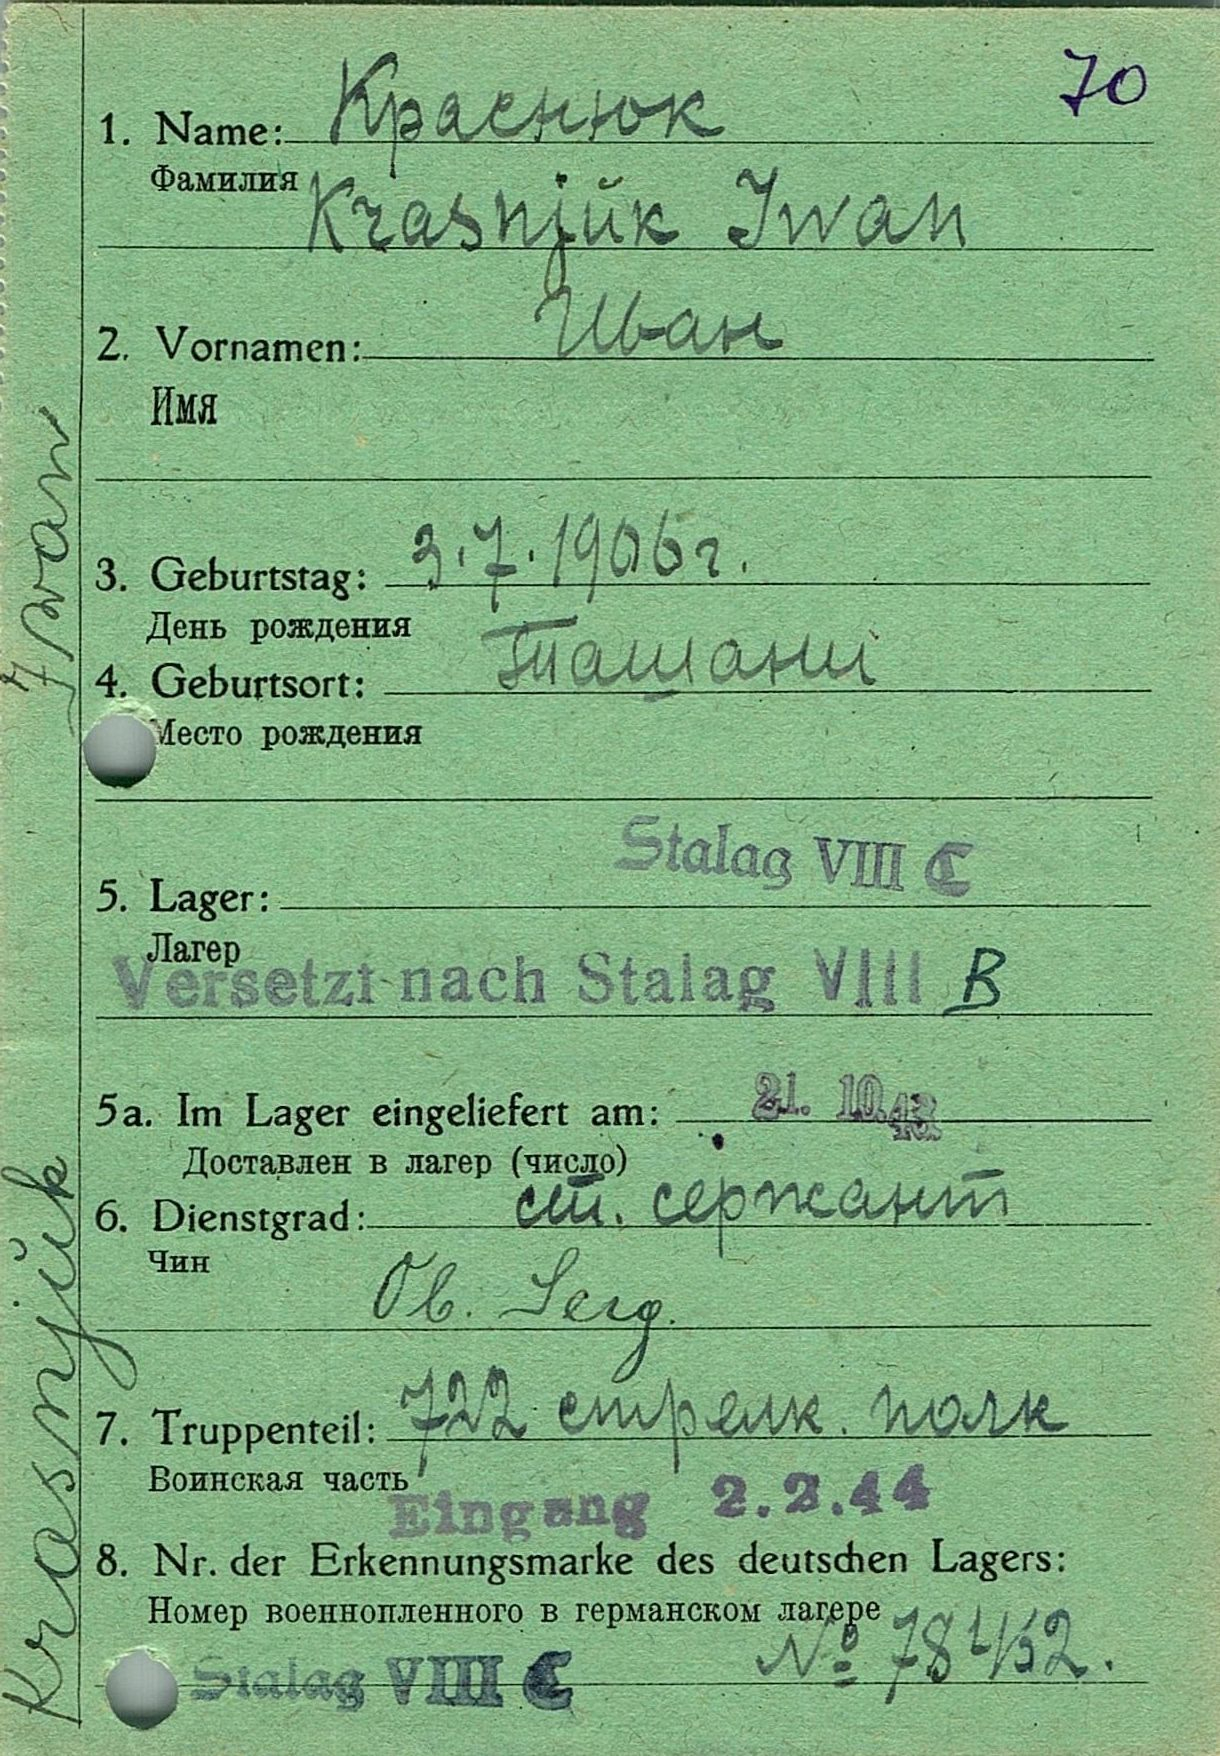 70
1. Name: Краснюк
Фамилия
Krasnjŭk Iwan
Иван
2. Vornamen:
Имя
3. Geburtstag: 3.7.1906г.
День рождения
4. Geburtsort: Ташань
Место рождения
Stalag VIII C
5. Lager:
Лагер
Versetzt nach Stalag VIII B
5a. Im Lager eingeliefert am: 21. 10.43
Доставлен в лагер (число)
6. Dienstgrad: ст. сержант
Чин
Ob. Serg.
7. Truppenteil: 722 стрелк. полк
Воинская часть
Eingang 2.2.44
8. Nr. der Erkennungsmarke des deutschen Lagers:
Номер военнопленного в германском лагере
Stalag VIII C №
Krasnjŭk Iwan